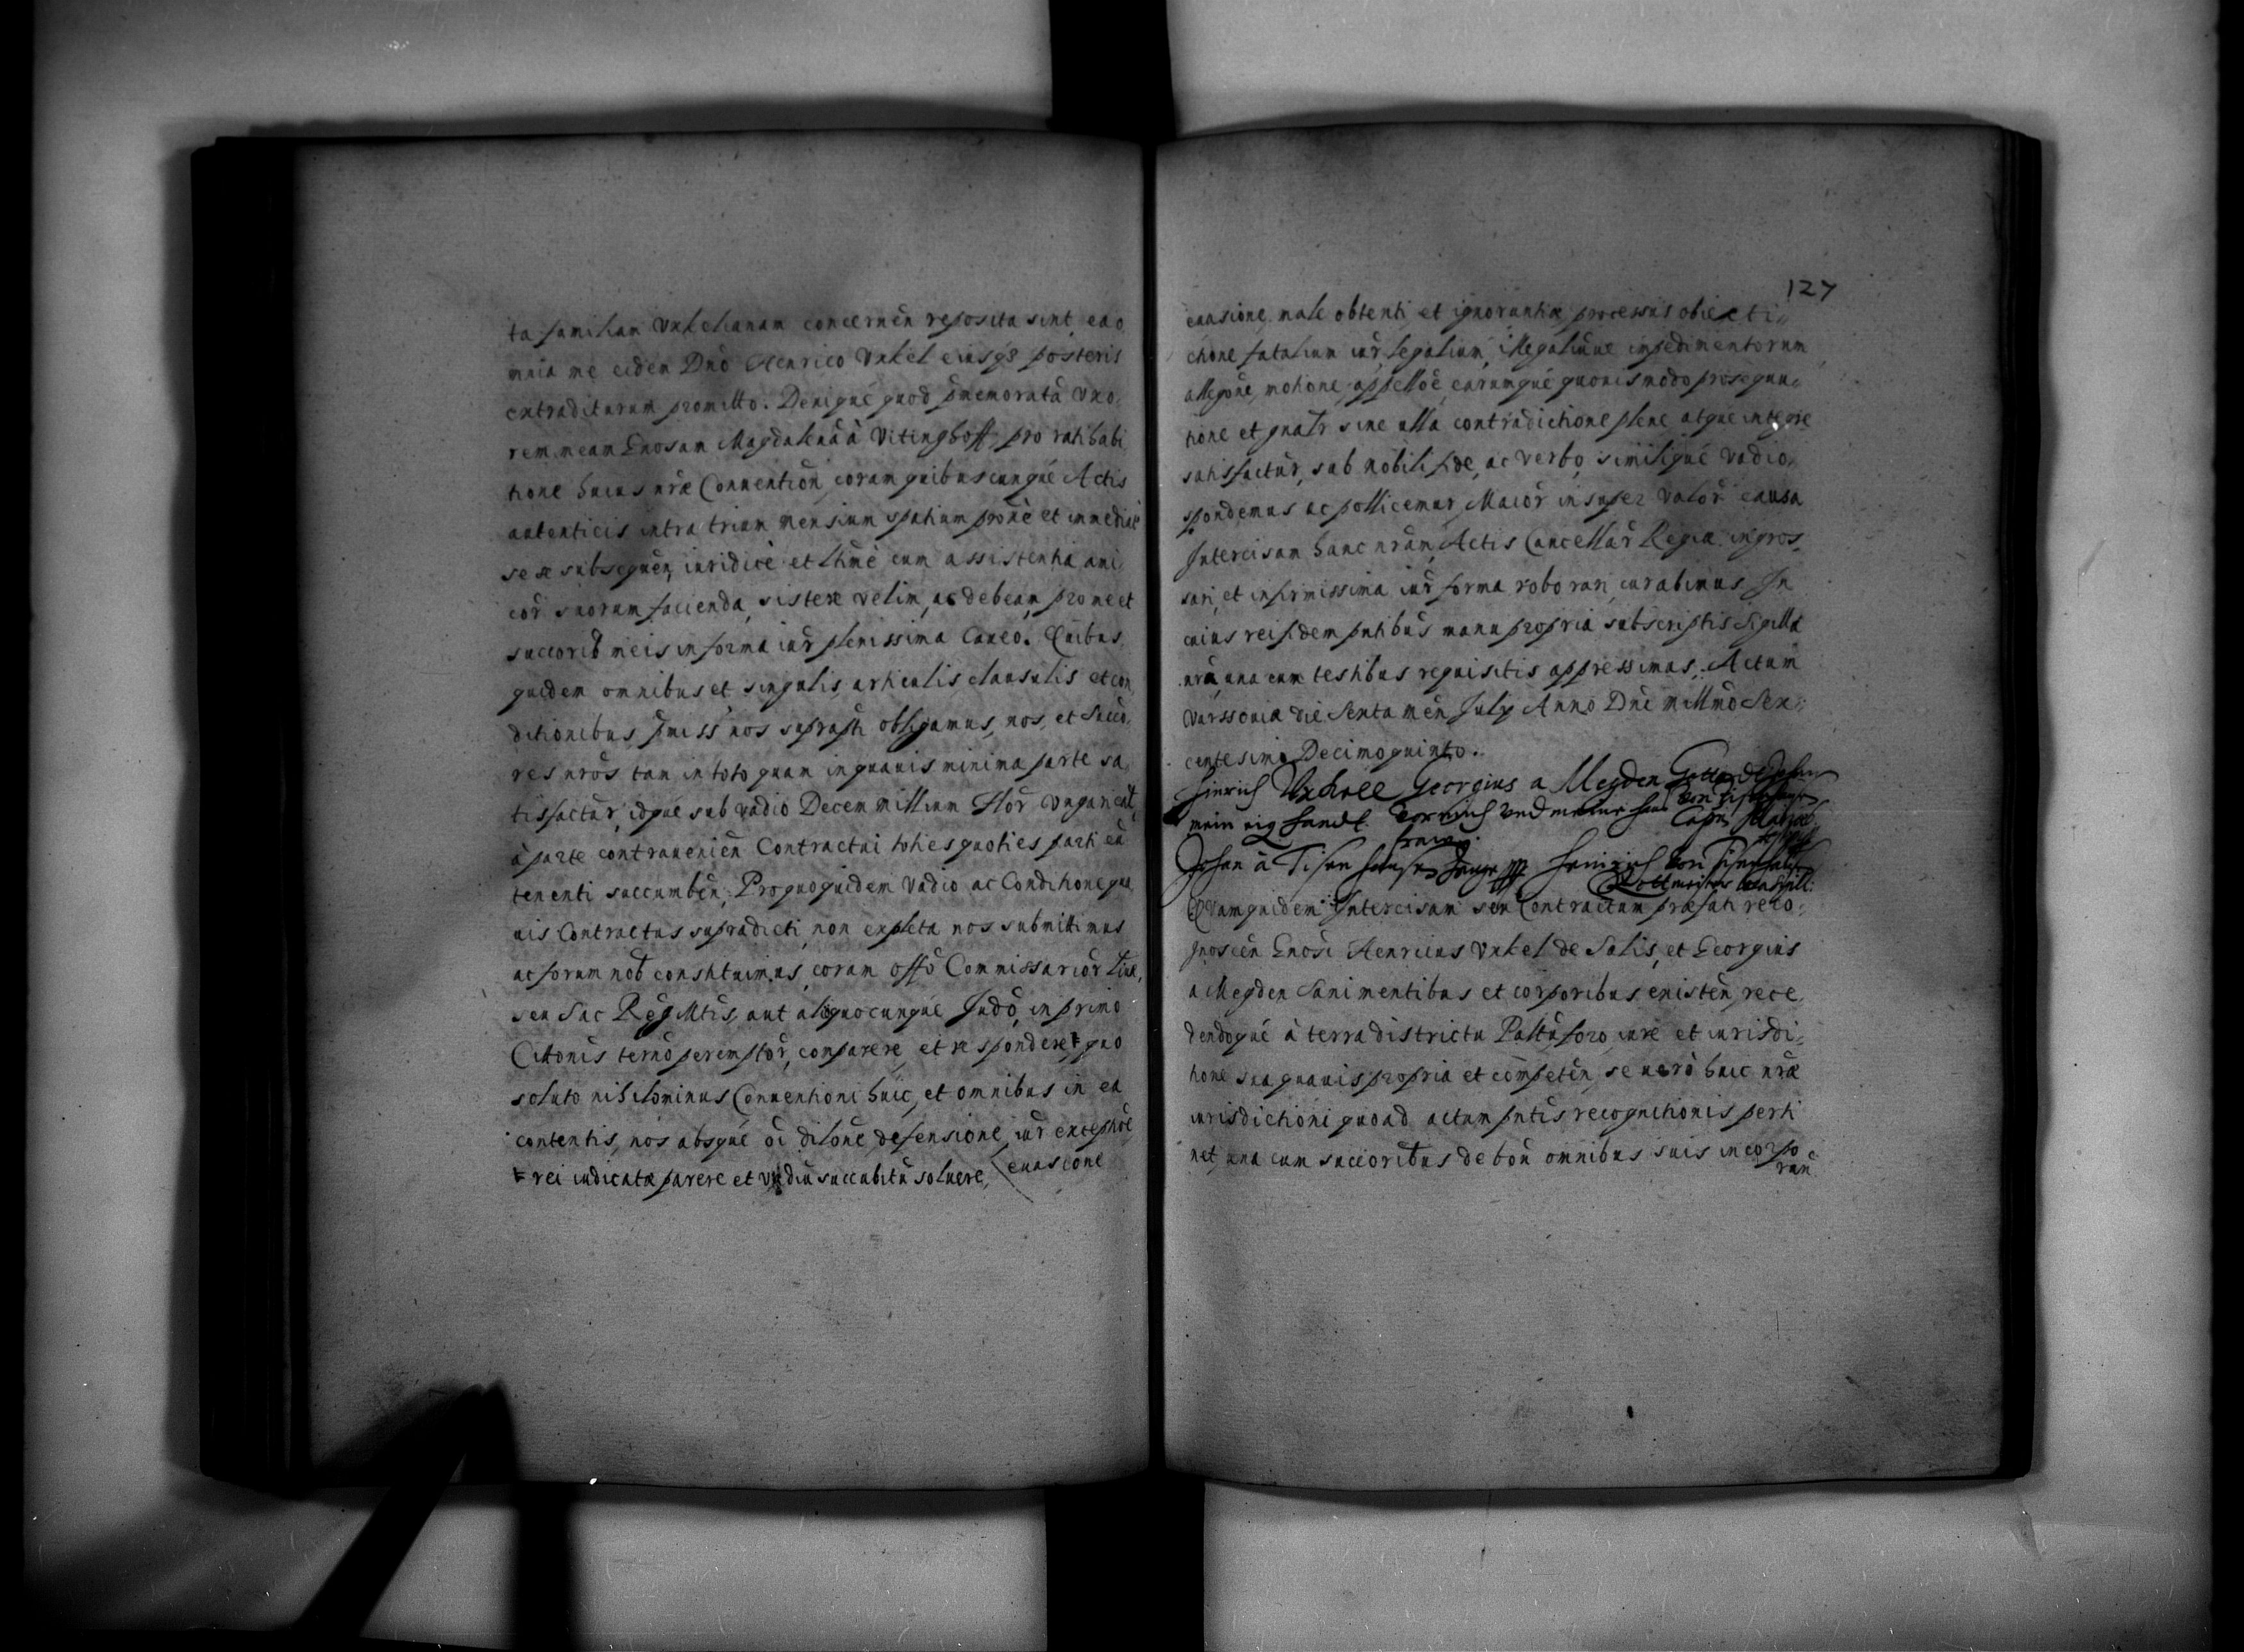 ta familiam Vxkelianam concernen̄ reposita sint, ea o
mnia me eidem Dnō Henrico Vxkel eiusq3 posteris
extraditurum promitto. Deniqué quod p̄memoratā vxo,
rem meam Gnosam Magdalenā à Vitinghoff, pro ratihabi
tione huius nr̄æ Conuention̄, coram quibuscunqué Actis
autenticis intra trium mensium spatium pronē et immediatē
sese subsequen̄, iuridicè et lt̄imè cum assistentia ami
cor̄ suorum facienda, sistere velim, ac debeam, pro me et
succorib meis in forma iur̄ plenissima Caueo. Quibus,
quidem omnibus et singulis, articulis clausulis et con,
ditionibus p̄miss nos suprasti obligamus, nos, et Succo,
res nr̄os tam in toto quam in quauis minima parte sa,
tisfactur̄, idque sub vadio Decem millium Flor̄ Vngarical,
à parte contrauenien̄ Contractui toties quoties parti eū
tenenti succumben̄, Pro quo quidem Vadio ac Conditione qua
uis Contractus supradicti, non expleta nos submittimus
ac forum nob constituimus, coram offō Commissarior̄ Liuæ,
seu Sac Reg Mtis, aut aliquocunqué Judō, in primo
Cittonis termō peremptor̄, comparere, et respondere ŧ quo
soluto nihilominus Conuentioni huic, et omnibus in ea
contentis, nos absqué oī dilōne, defensione, iur̄ exceptiōē
ŧ rei iudicatæ parere et vadiū succubitū soluere, euasione
127
euasione, male obtenti, et ignorantiæ processus obiecti,,
ctione fatalium iur̄, legalium, illegaliūue impedimentorum
allegōne, motione, appellōē, earumqué quouismodo prosequu,
tione et gnālr sine ulla contradictione plene atque integre
satisfactur̄, sub nobili fide, ac verbo, similiqué vadio,
spondemus ac pollicemur, Maior̄ insuper valor̄ causa
Intercisam hanc nr̄am, Actis Cancellar̄ Regiæ ingros,
sari, et in firmissima iur̄ forma roborari, curabimus, In
cuius rei fidem pn̄tibus manu propria subscriptis Sigilla
nr̄a, una cum testibus requisitis appressimus. Actum
Varssouiæ die Sexta men̄ July Anno Dnī millmō Sex,,
centesimo Decimoquinto.
Hinrich Vxkoell Georgius a Meyden
mein eig handt. vor mich vnd meine
frawe.
Johan à Tisenhausen Heinrich von Tisenhausen
Rottmeister
Quamquidem Intercisam seu Contractum præfati reco,
gnoscen̄ Gnosi Henricus Vxkel de Salis, et Georgius
a Meyden Sani mentibus et corporibus existen̄, rece,
dendoqué à terra districtu Pallū foro, iure et iurisdi,
tione sua quauis propria et competen̄, se verò huic nr̄æ
iurisdictioni quoad actum pn̄tis recognitionis perti
net, una cum succoribus de bon̄ omnibus suis incorpo
ran̄